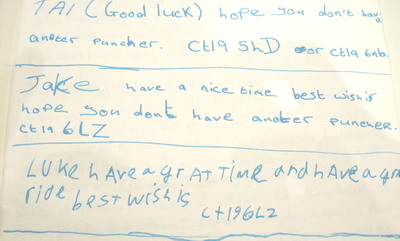 TAI (Good luck) hope you don't have
anoter puncher. Ct19 5hD or ct19 6nb.
Jake have a nice time best wishis
hope you dont have anoter puncher.
ct19 6LZ
LUKe hAve a grAt Time and hAve a gra
ride best wish is ct196LZ